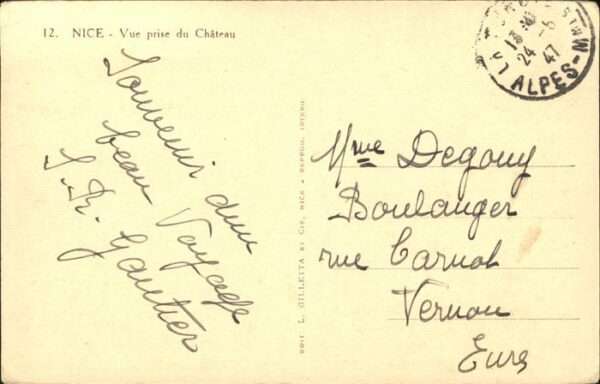 12. NICE - Vue prise du Château
Souvenir d'un
beau Voyage
J.R. Gautier
EDIT. L. GILLETTA ET CIE, NICE
24-5
47
ALPES-M
Mme Degouy
Boulanger
rue Carnot
Vernon
Eure